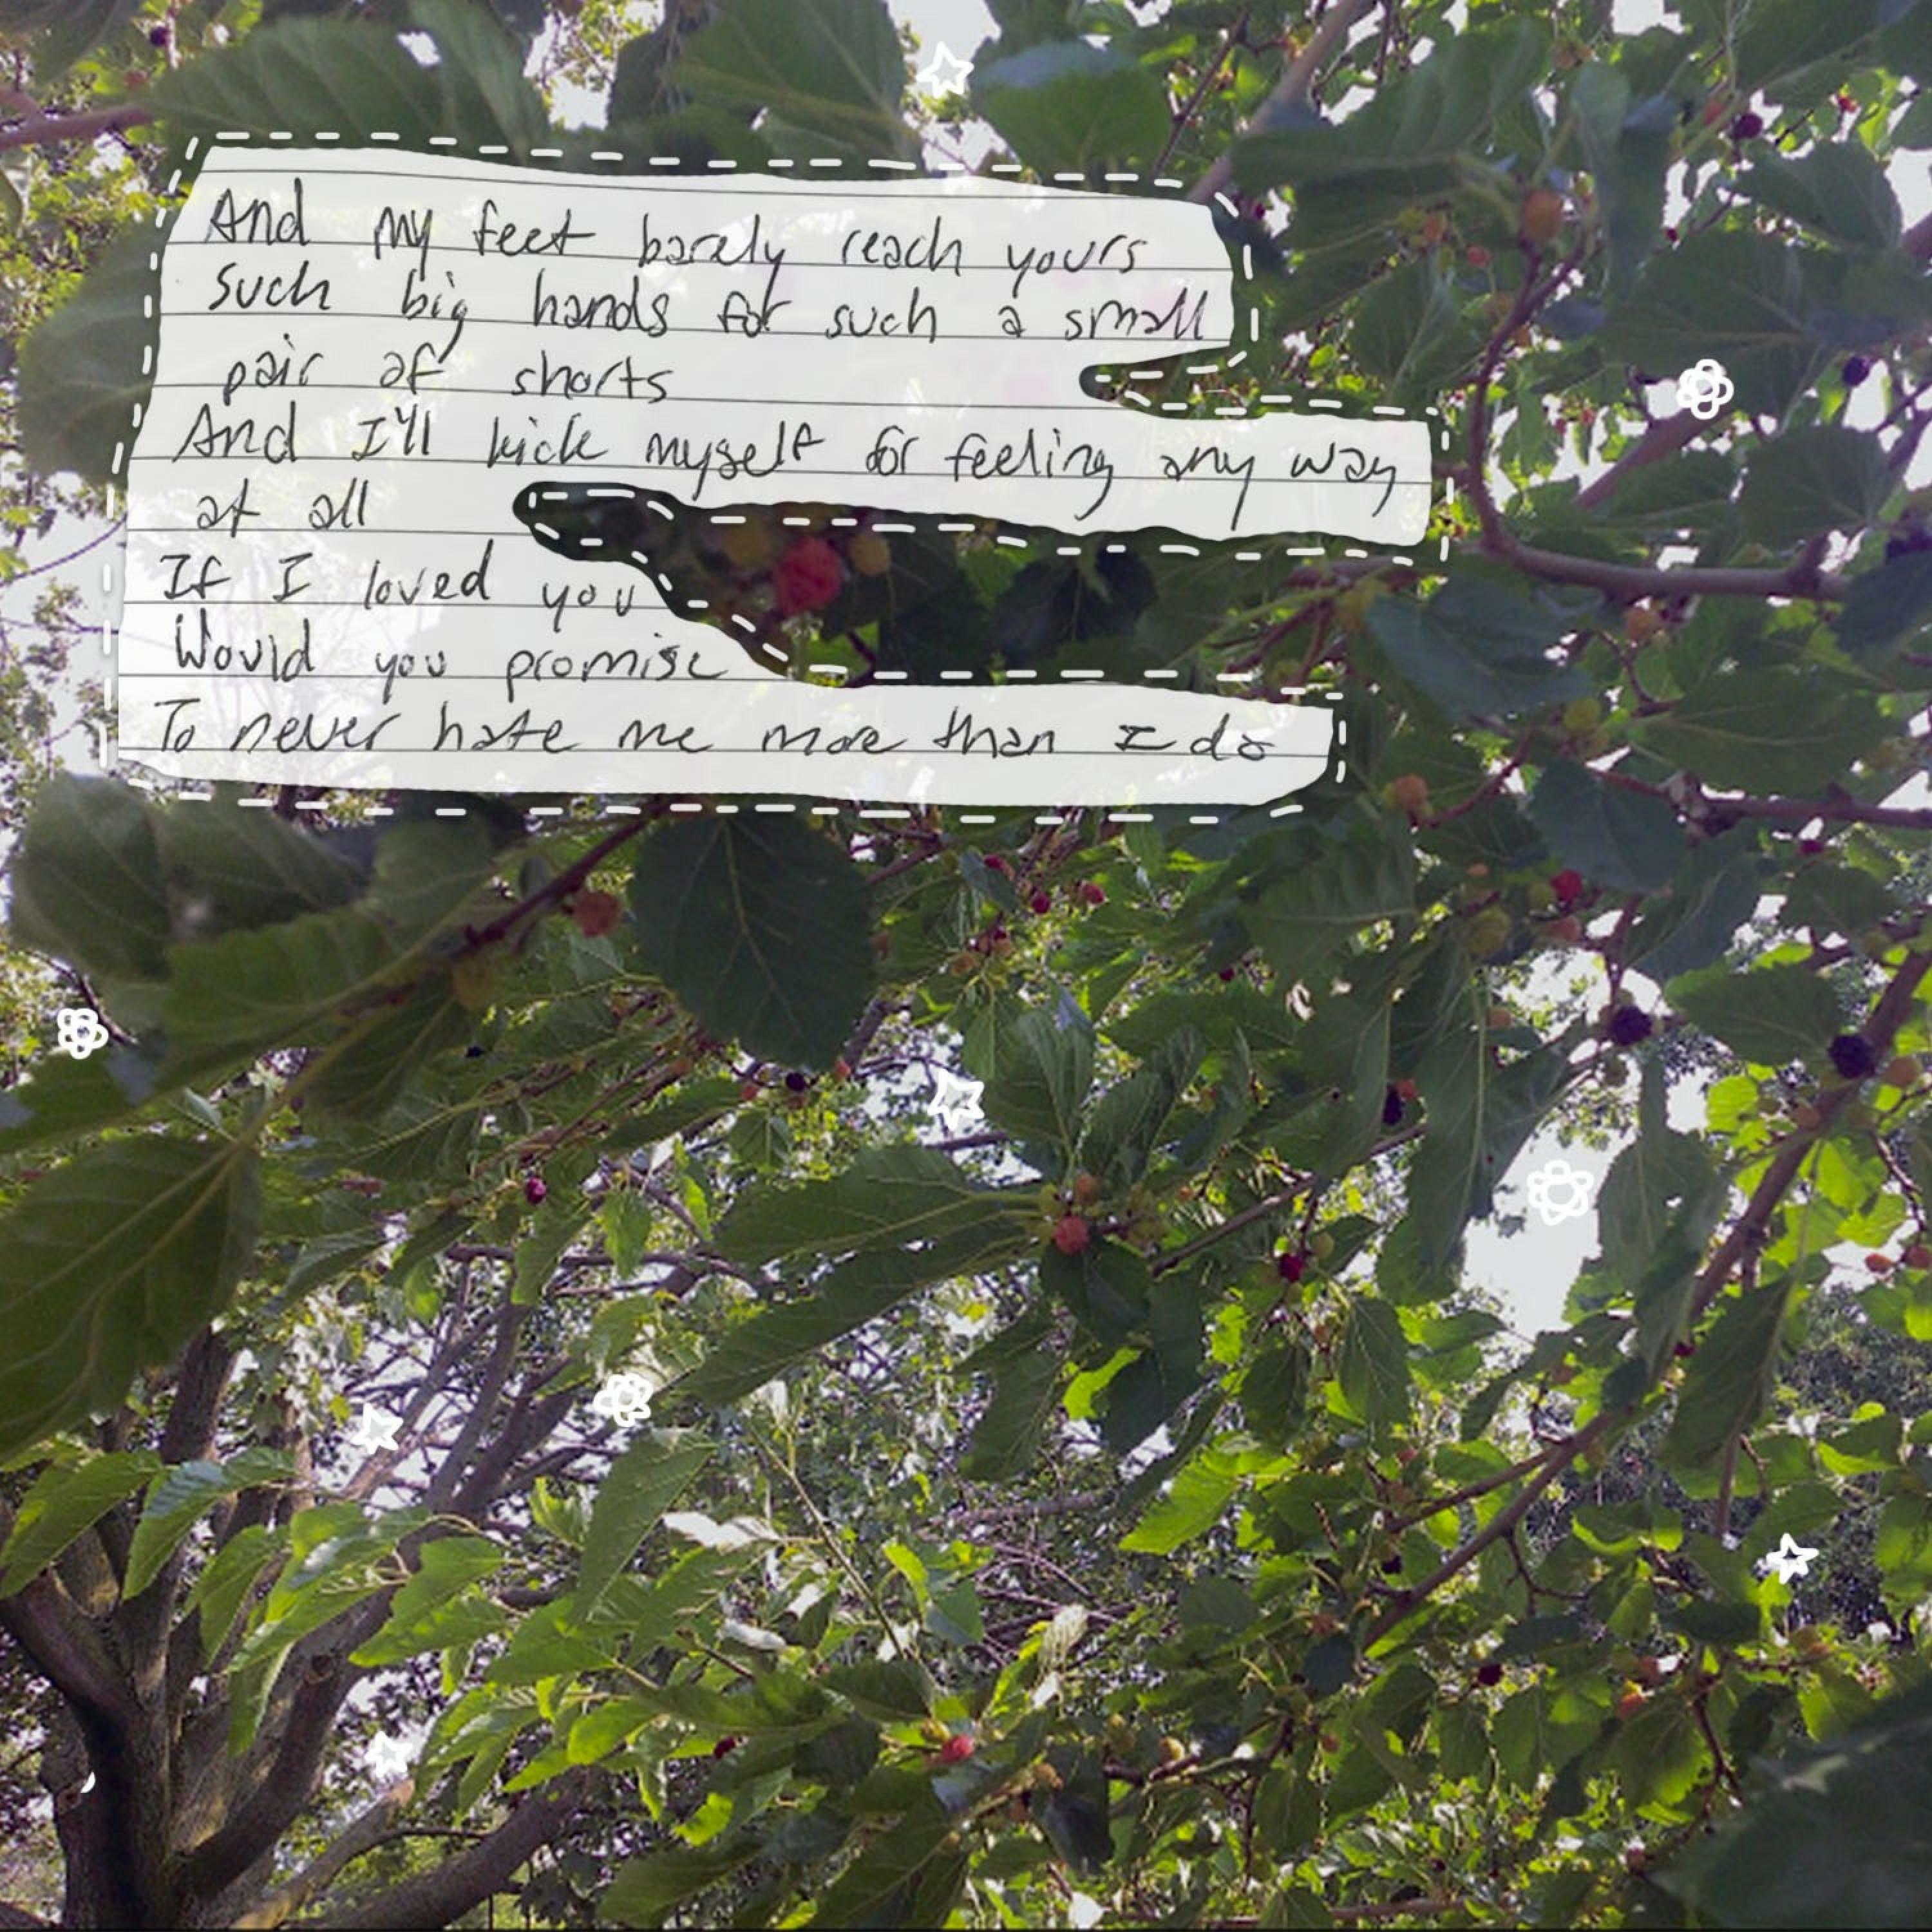 And my feet barely reach yours
Such big hands for such a small
pair of shorts
And I'll kick myself for feeling any way
at all
If I loved you
Would you promise
To never hate me more than I do